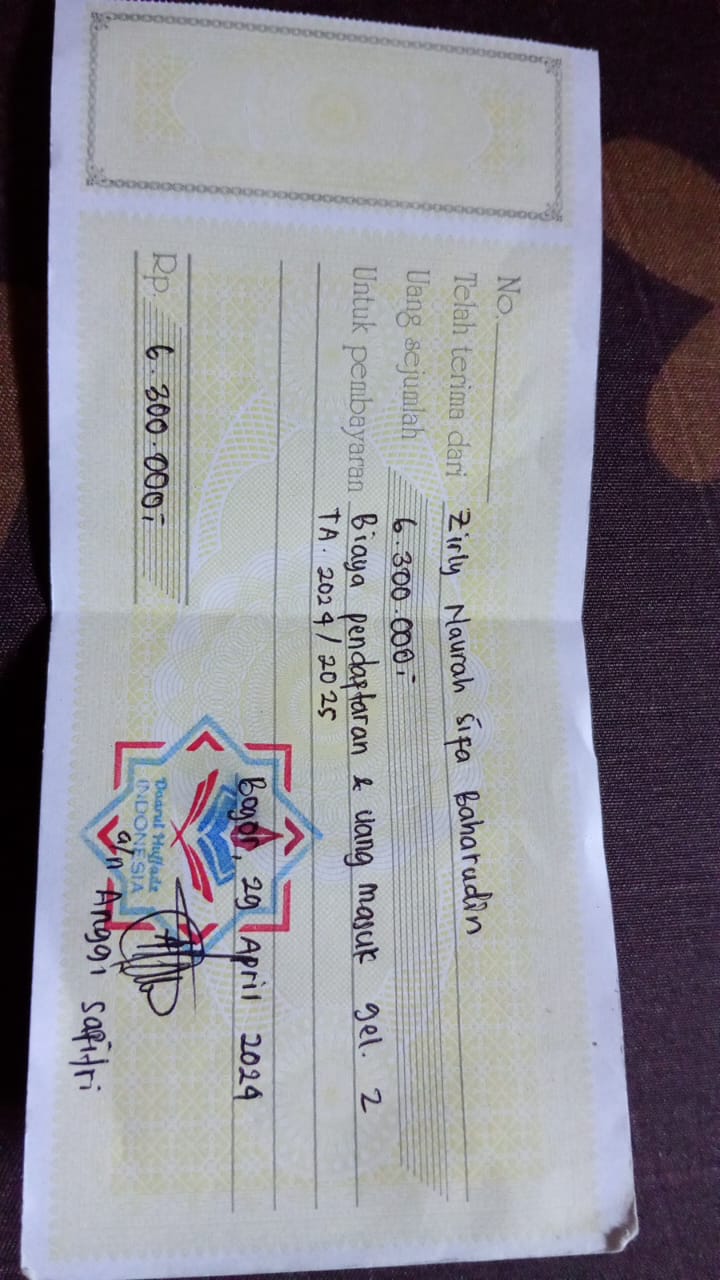 No.
Telah terima dari Zirly Naurah Sifa Baharudin
Uang sejumlah 6.300.000,-
Untuk pembayaran Biaya pendaftaran & uang masuk gel. 2
TA. 2024/2025
Bogor, 29 April 2024
Rp. 6.300.000,-
Daarul Huffadz
INDONESIA
a/n Anggi Safitri